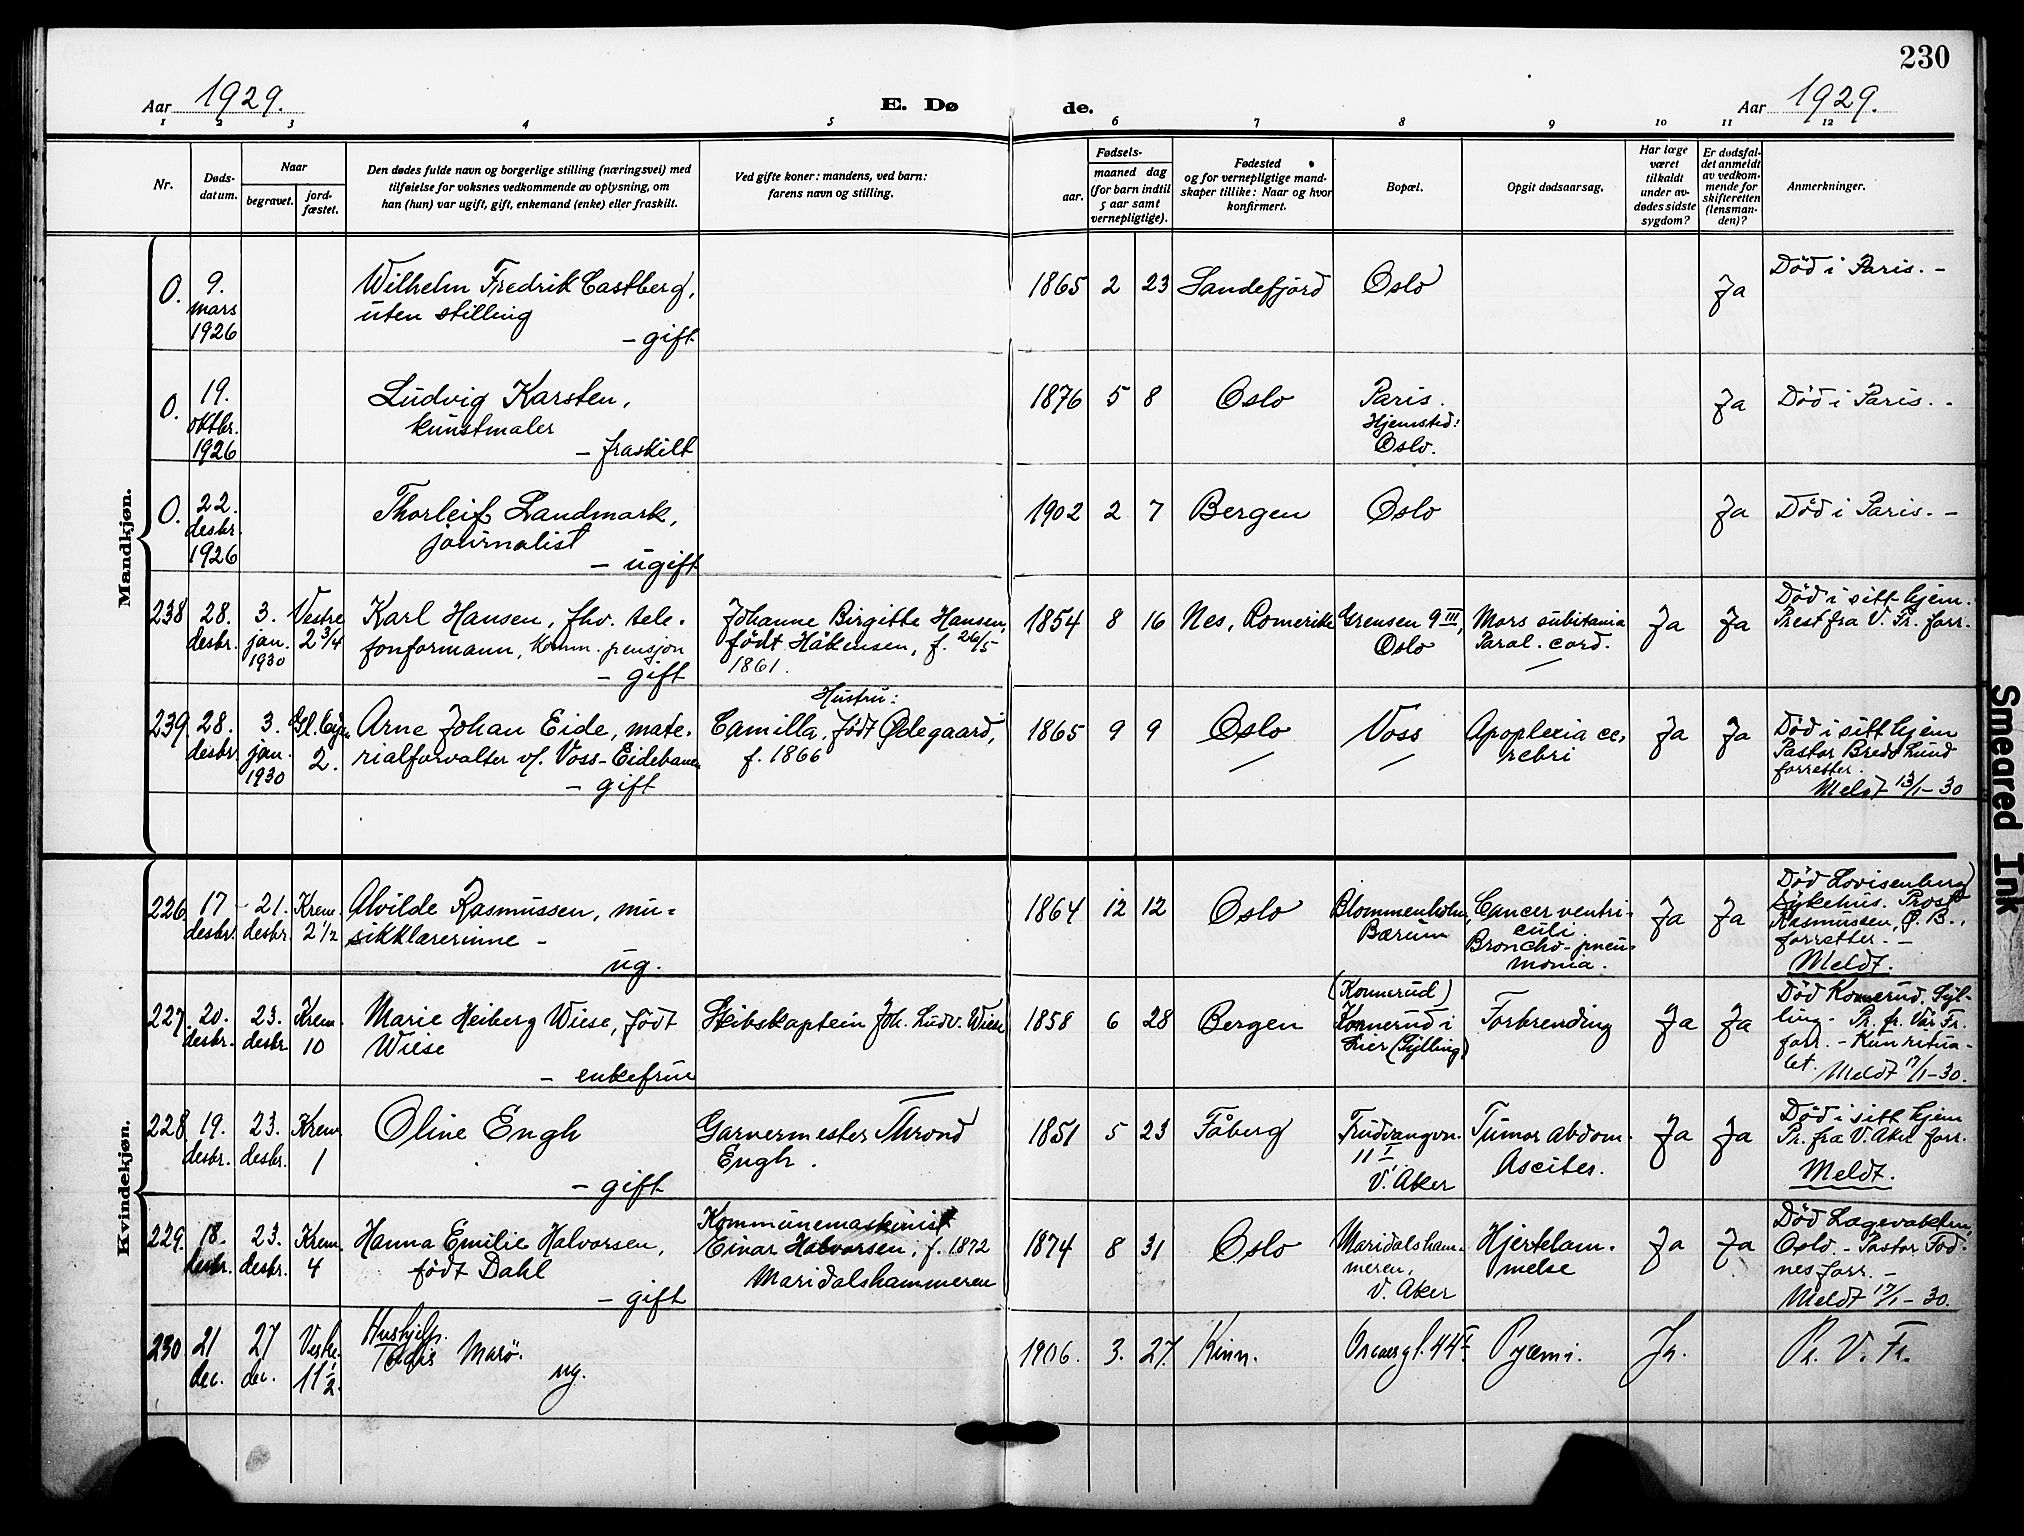 230
Aar 1929.
E. Dø de.
Aar 1929.
1 2 3 4 5 6 7 8 9 10 11 12
Nr.
Døds-
datum.
Naar
begravet.
jord-
fæstet.
Den dødes fulde navn og borgerlige stilling (næringsvei) med
tilføielse for voksnes vedkommende av oplysning, om
han (hun) var ugift, gift, enkemand (enke) eller fraskilt.
Ved gifte koner: mandens, ved barn:
farens navn og stilling.
Fødsels-
aar.
maaned dag
(for barn indtil
5 aar samt
vernepligtige).
Fødested
og for vernepligtige mand-
skaper tillike: Naar og hvor
konfirmert.
Bopæl.
Opgit dødsaarsag.
Har læge
været
tilkaldt
under av-
dødes sidste
sygdom?
Er dødsfal-
det anmeldt
av vedkom-
mende for
skifteretten
(lensman-
den)?
Anmerkninger.
Mandkjøn.
0.
9.
mars
1926
Wilhelm Fredrik Castberg,
uten stilling
- gift
1865 2 23 Sandefjord
Oslo
Ja
Död i Paris. -
0.
19.
oktbr.
1926
Ludvig Karsten,
kunstmaler
- fraskilt
1876 5 8 Oslo
Paris.
Hjemsted:
Oslo.
Ja
Död i Paris. -
0.
22.
desbr.
1926
Thorleif Landmark,
journalist
- ugift
1902 2 7 Bergen
Oslo
Ja
Död i Paris. -
238
28.
desbr.
3.
jan.
1930
Vestre
2 3/4
Karl Hansen, fhv. tele-
fonformann, komm. pensjon
- gift
Johanne Birgitte Hansen,
født Håkensen, f. 26/5
1861.
1854 8 16 Nes, Romerike
Grensen 9 III,
Oslo
Mors subitania
Paral. cord.
Ja
Ja
Död i sitt hjem.
Prest fra V. Fr. forr.
239
28.
desbr.
3.
jan.
1930
2.
Arne Johan Eide, mate-
rialforvalter v/. Voss-Eidebanen
- gift
Hustru:
Camilla, født Ødegaard,
f. 1866
1865 9 9 Oslo
Voss
Apoplexia ce-
rebri
Ja
Ja
Död i sitt hjem
Pastor Bredo Lund
forretter.
Meldt 13/1-30
Kvindekjøn.
226
17
desbr.
21.
desbr.
Krem.
2 1/2
Alvilde Rasmussen, mu-
sikklærerinne -
ug.
1864 12 12 Oslo
Blommenholm,
Bærum
Cancer ventri-
culi.
Broncho-pneu-
monia.
Ja
Ja
Död Lovisenberg
Sykehus. Prost
Rasmussen, Ø. B.,
forretter. -
Meldt.
227
20.
desbr.
23.
desbr.
Krem.
10
Marie Heiberg Wiese, født
Wiese
- enkefrue
Skibskaptein Joh. Ludv. Wiese
1858 6 28 Bergen
(Konnerud)
Konnerud i
Lier (Sylling)
Forbrending
Ja
Ja
Död Konnerud, Syl-
ling. Pr. fr. Vår Fr.
forr. - Kun ritua-
let. Meldt 17/1-30.
228
19.
desbr.
23.
desbr.
Krem.
1
Oline Engh
- gift
Garvermester Thrond
Engh.
1851 5 23 Fåberg
Frudvangvn.
11 I
V. Aker
Tumor abdom.
Ascites.
Ja
Ja
Död i sitt hjem
Pr. fra V. Aker forr.
Meldt.
229.
18.
desbr.
23.
desbr.
Krem.
4
Hanna Emilie Halvorsen,
født Dahl
- gift
Kommunemaskinist
Einar Halvorsen, f. 1872
Maridalshammeren
1874 8 31 Oslo
Maridalsham-
meren,
V. Aker
Hjertelam-
melse
Ja
Ja
Död Lægevakten,
Oslo. - Pastor Tod-
nes forr. -
Meldt 17/1-30.
230
21
dec.
27
dec.
Vestre.
11 1/2.
Hushjelp.
Marö.
ug.
1906. 3. 27. Kinn.
44 I.
Pyæmi.
Ja.
Pr. V. Fr.
Smeared Ink